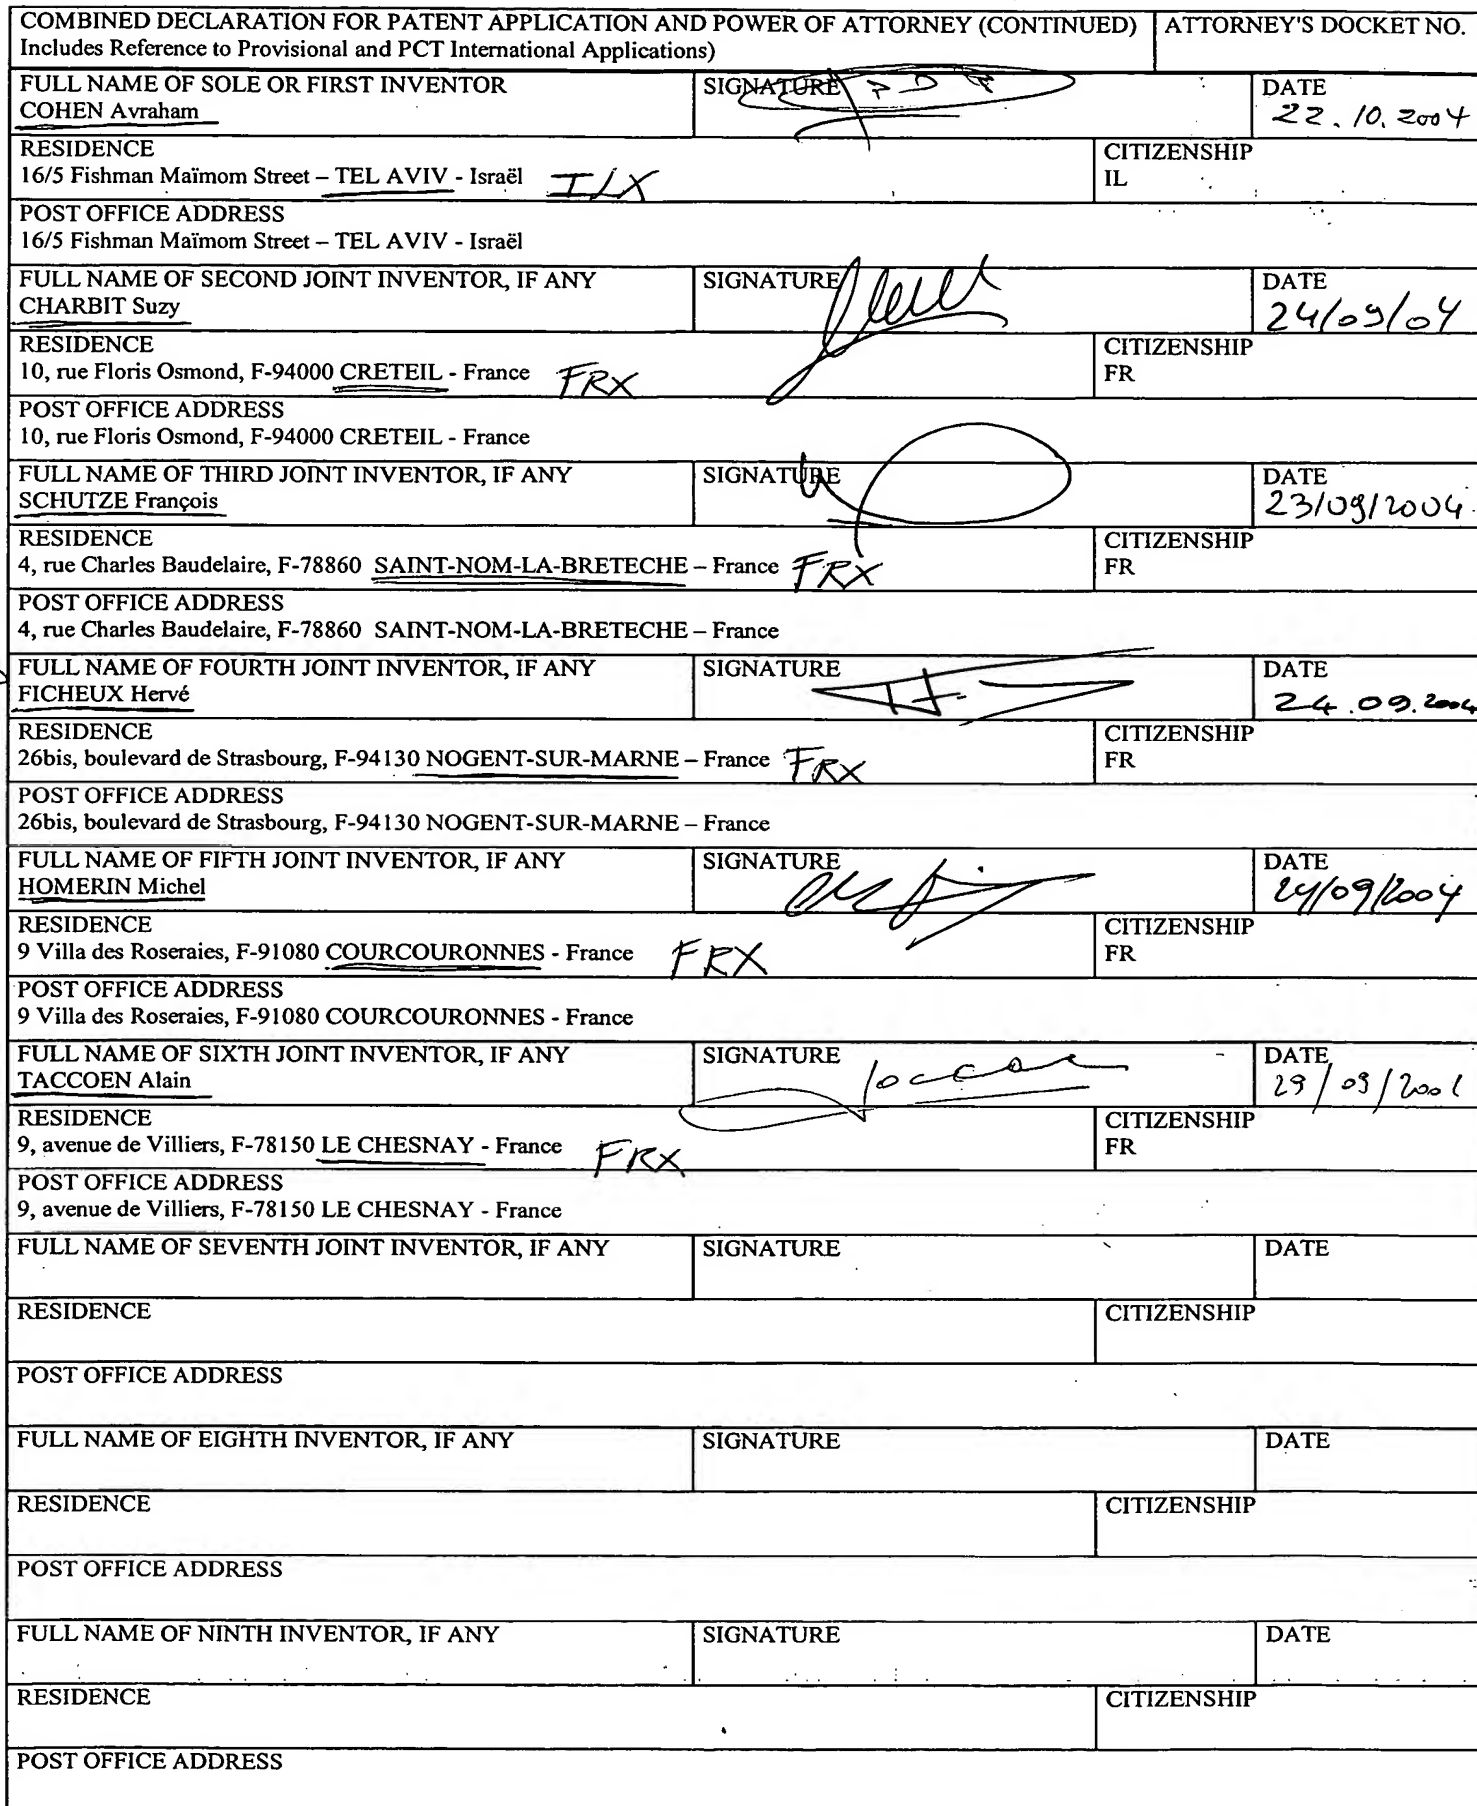 COMBINED DECLARATION FOR PATENT APPLICATION AND POWER OF ATTORNEY (CONTINUED) ATTORNEY'S DOCKET NO.
Includes Reference to Provisional and PCT International Applications)
FULL NAME OF SOLE OR FIRST INVENTOR SIGNATURE DATE
COHEN Avraham 22.10.2004
RESIDENCE CITIZENSHIP
16/5 Fishman Maïmom Street – TEL AVIV - Israël ILX IL
POST OFFICE ADDRESS
16/5 Fishman Maïmom Street – TEL AVIV - Israël
FULL NAME OF SECOND JOINT INVENTOR, IF ANY SIGNATURE DATE
CHARBIT Suzy 24/09/04
RESIDENCE CITIZENSHIP
10, rue Floris Osmond, F-94000 CRETEIL - France FRX FR
POST OFFICE ADDRESS
10, rue Floris Osmond, F-94000 CRETEIL - France
FULL NAME OF THIRD JOINT INVENTOR, IF ANY SIGNATURE DATE
SCHUTZE François 23/09/2004
RESIDENCE CITIZENSHIP
4, rue Charles Baudelaire, F-78860 SAINT-NOM-LA-BRETECHE – France FRX FR
POST OFFICE ADDRESS
4, rue Charles Baudelaire, F-78860 SAINT-NOM-LA-BRETECHE – France
FULL NAME OF FOURTH JOINT INVENTOR, IF ANY SIGNATURE DATE
FICHEUX Hervé 24.09.2004
RESIDENCE CITIZENSHIP
26bis, boulevard de Strasbourg, F-94130 NOGENT-SUR-MARNE – France FRX FR
POST OFFICE ADDRESS
26bis, boulevard de Strasbourg, F-94130 NOGENT-SUR-MARNE – France
FULL NAME OF FIFTH JOINT INVENTOR, IF ANY SIGNATURE DATE
HOMERIN Michel 24/09/2004
RESIDENCE CITIZENSHIP
9 Villa des Roseraies, F-91080 COURCOURONNES - France FRX FR
POST OFFICE ADDRESS
9 Villa des Roseraies, F-91080 COURCOURONNES - France
FULL NAME OF SIXTH JOINT INVENTOR, IF ANY SIGNATURE DATE
TACCOEN Alain
RESIDENCE CITIZENSHIP
9, avenue de Villiers, F-78150 LE CHESNAY - France FRX FR
POST OFFICE ADDRESS
9, avenue de Villiers, F-78150 LE CHESNAY - France
FULL NAME OF SEVENTH JOINT INVENTOR, IF ANY SIGNATURE DATE
RESIDENCE CITIZENSHIP
POST OFFICE ADDRESS
FULL NAME OF EIGHTH INVENTOR, IF ANY SIGNATURE DATE
RESIDENCE CITIZENSHIP
POST OFFICE ADDRESS
FULL NAME OF NINTH INVENTOR, IF ANY SIGNATURE DATE
RESIDENCE CITIZENSHIP
POST OFFICE ADDRESS